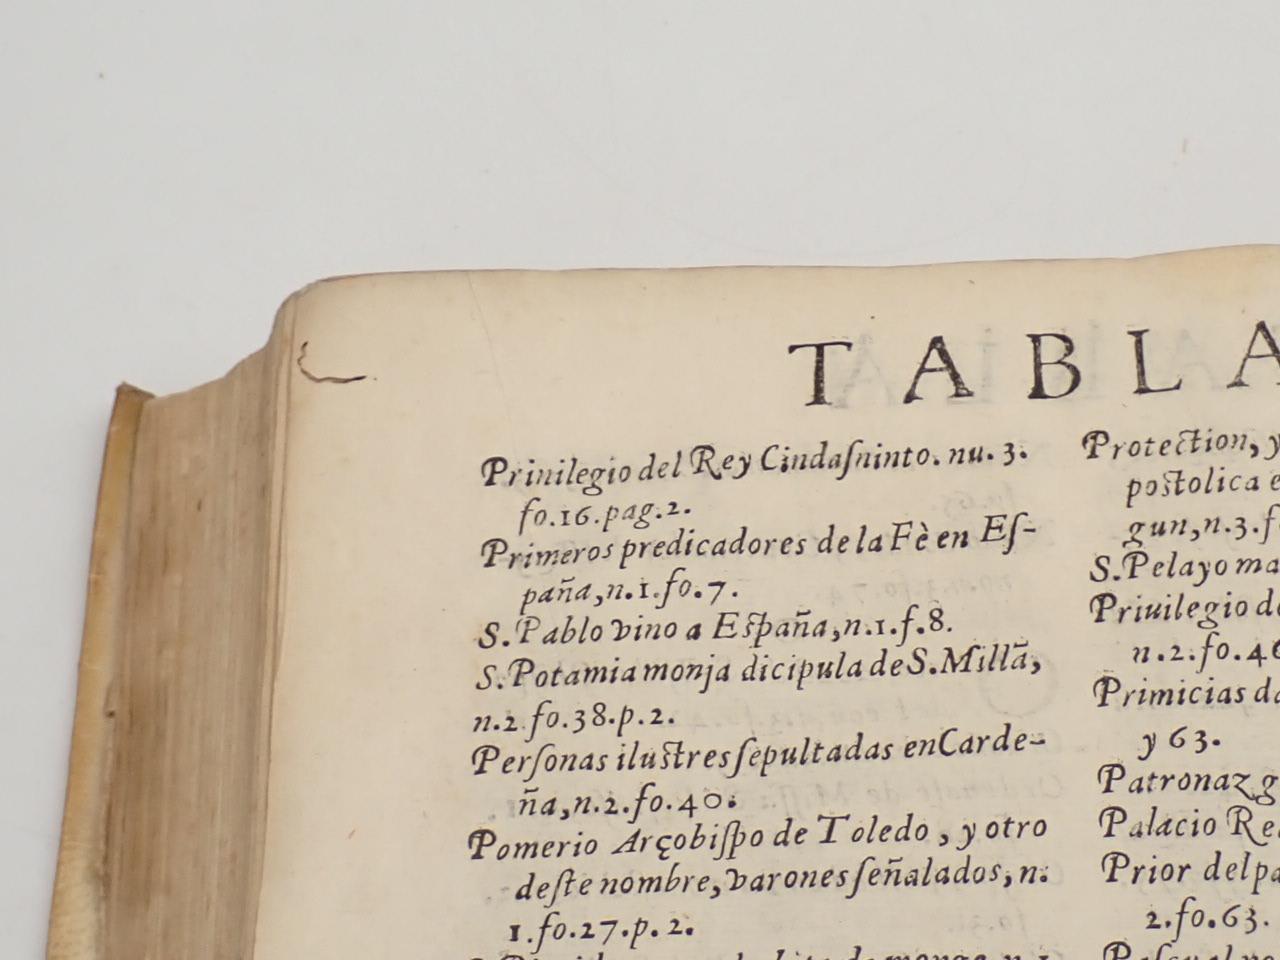 TABLA
Prinilegio del Rey Cindaſninto. nu. 3.
fo.16.pag.2.
Primeros predicadores de la Fè en Eſ-
paña,n.1.fo.7.
S.Pablo vino a España,n.1.f.8.
S.Potamia monja dicipula de S.Millã,
n.2.fo.38.p.2.
Perſonas ilustres ſepultadas en Carde-
ña,n.2.fo.40.
Pomerio Arçobiſpo de Toledo, y otro
deſte nombre, varones ſeñalados, n.
1.fo.27.p.2.
Protection, y
postolica e
gun,n.3.f
S.Pelayo ma
Priuilegio de
n.2.fo.46
Primicias da
y 63.
Patronazg
Palacio Re
Prior del pa
2.fo.63.